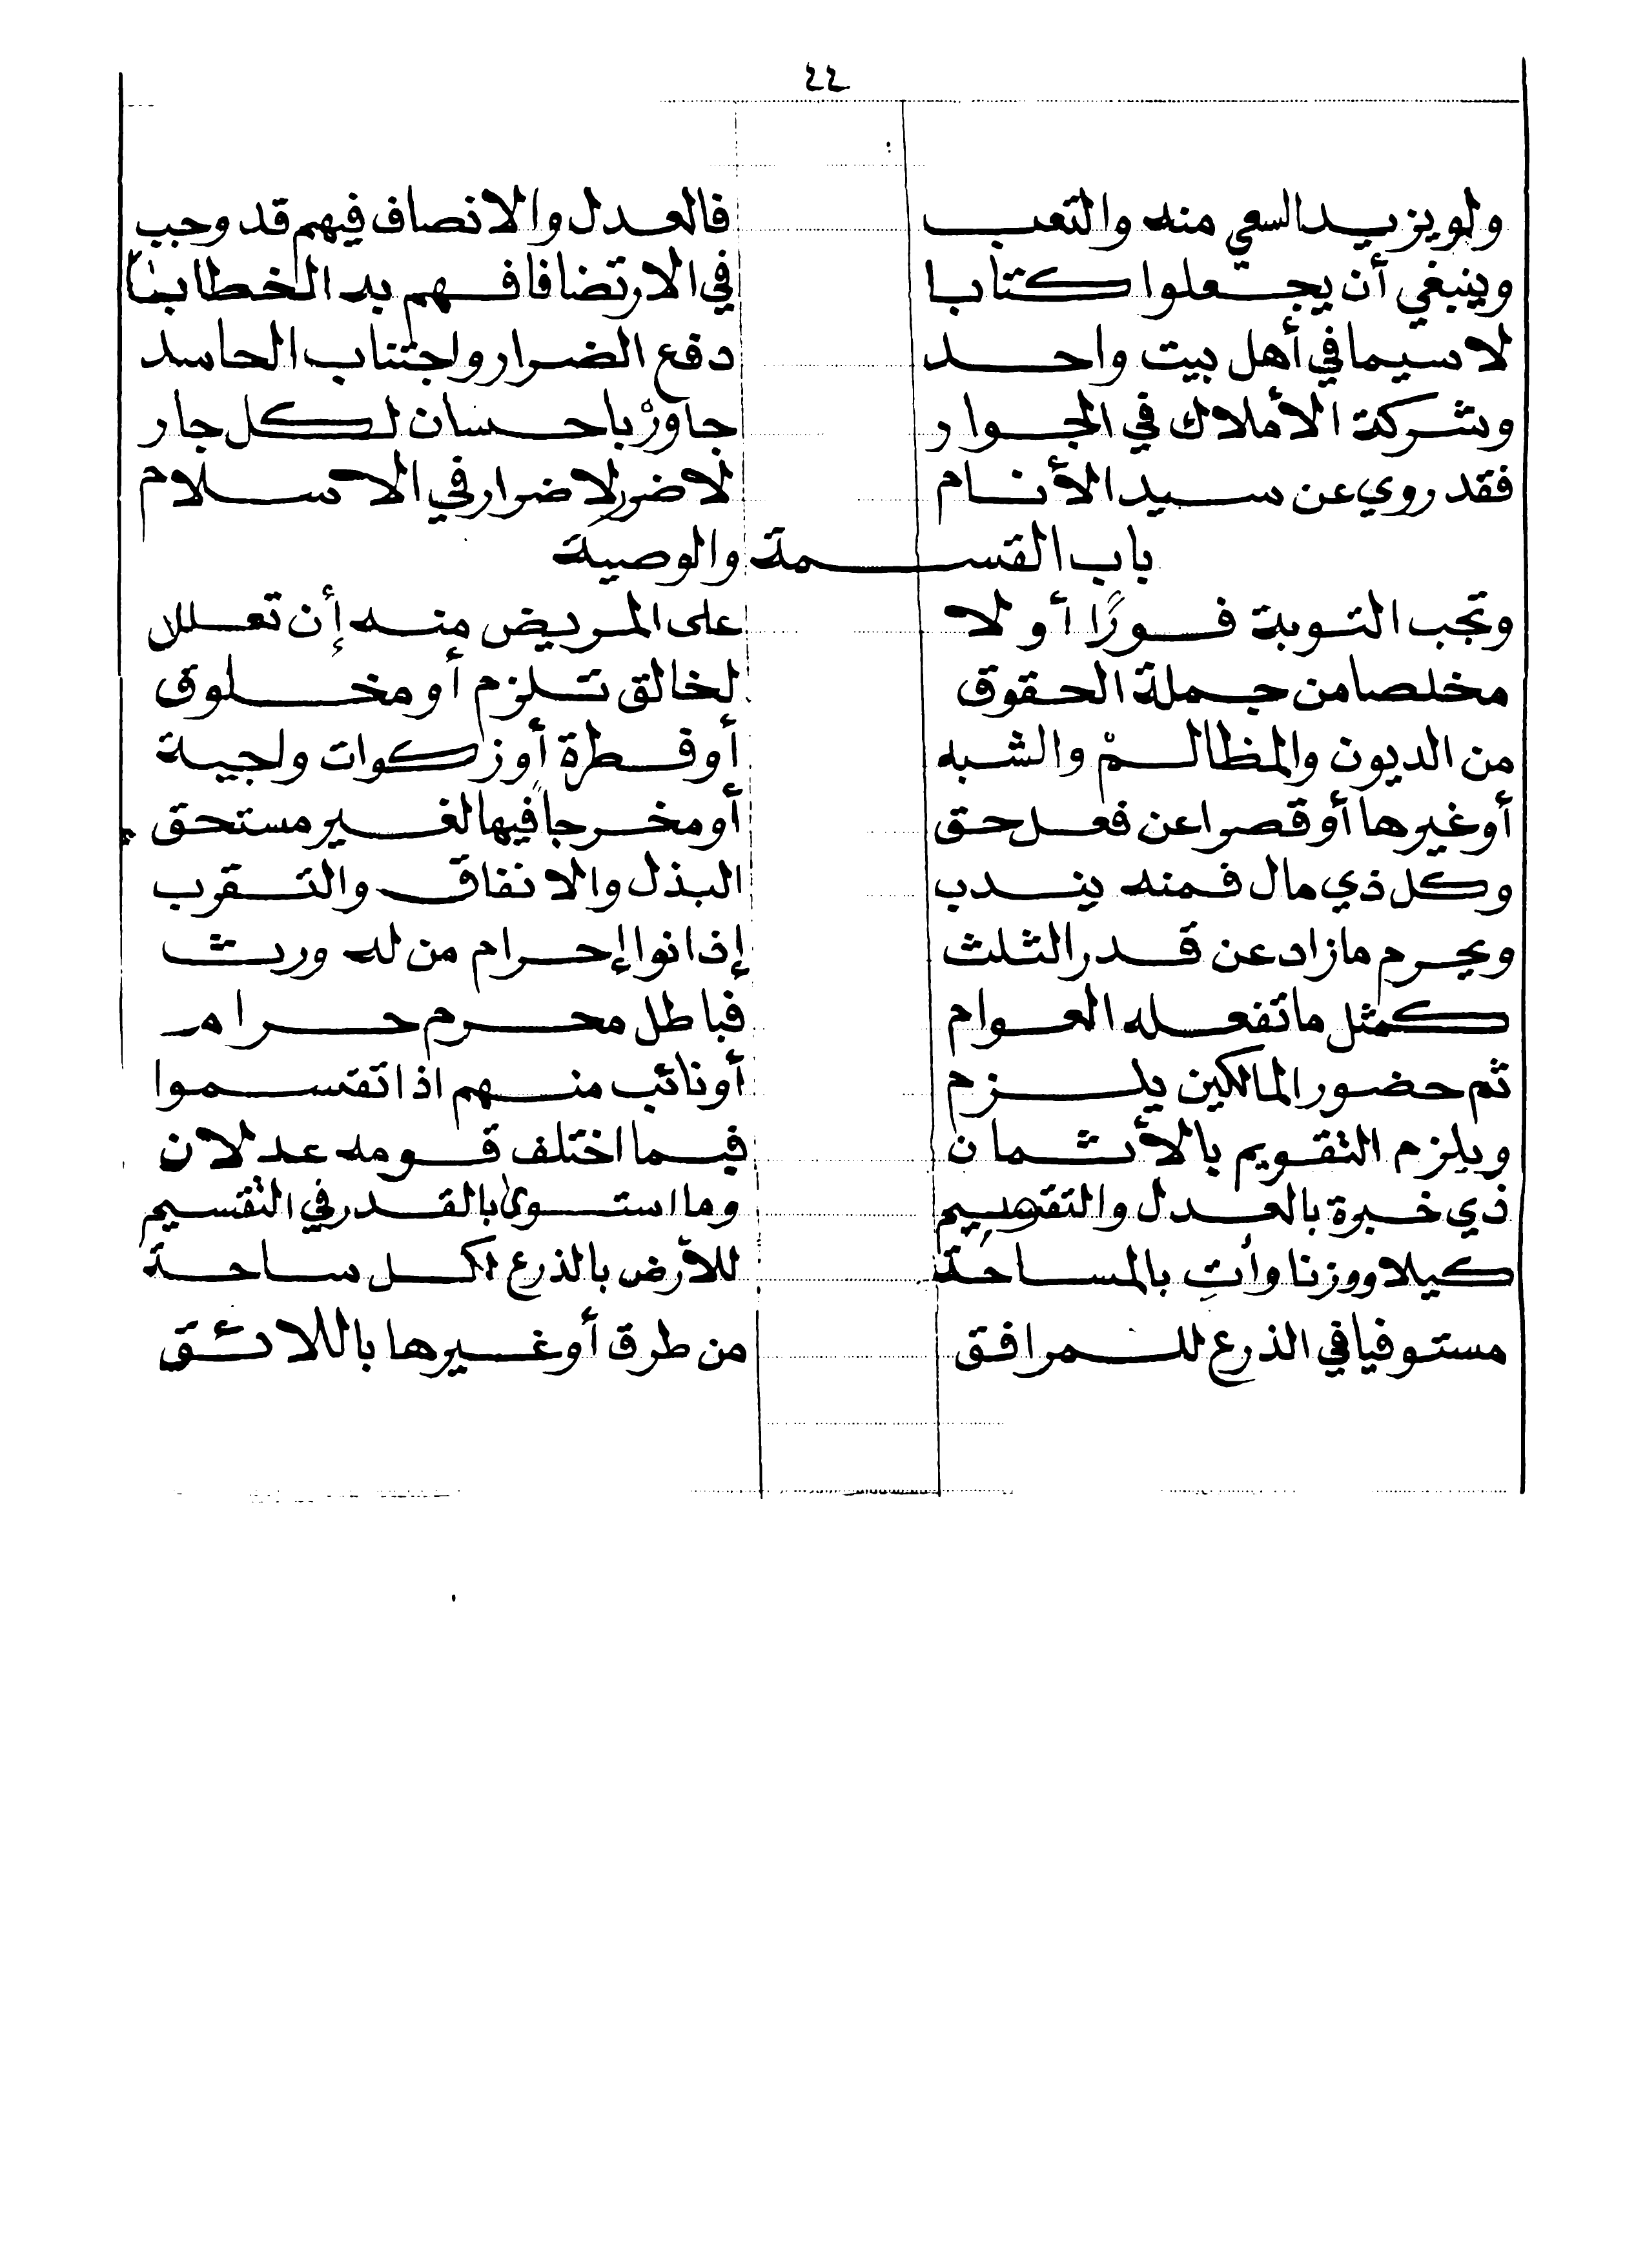 ٤٤
ولو يزيد السعي منه والتعب فالعدل والانصاف فيهم قد وجب
وينبغي أن يجعلوا كتابا في الارتضا فافهم به الخطابا
لا سيما في أهل بيت واحد دفع الضرار واجتناب الحاسد
وشركة الأملاك في الجوار جاورْ باحسان لكل جار
فقد روي عن سيد الأنام لا ضرر لا ضرار في الاسلام
باب القسمة والوصية
وتجب التوبة فورًا أولا على المريض منه إن تعللا
مخلصا من جملة الحقوق لخالق تلزم أو مخلوق
من الديون والمظالمْ والشبه أو فطرة أو زكوات واجبة
أو غيرها أو قصرا عن فعل حق أو مخرجاً فيها لغير مستحق
وكل ذي مال فمنه يندب البذل والانفاق والتقرب
ويحرم ما زاد عن قدر الثلث إذا نوا إحرام من له ورث
كمثل ما تفعله العوام فباطل محرم حرام
ثم حضور المالكين يلزم أو نائب منهم اذا تقتسموا
ويلزم التقويم بالأثمان فيما اختلف قومه عدلان
ذي خبرة بالعدل والتقسيم وما استوى بالقدر في التقسيم
كيلا ووزنا وأتِ بالمساحة للأرض بالذرع لكل ساحة
مستوفيا في الذرع للمرافق من طرق أو غيرها باللائق